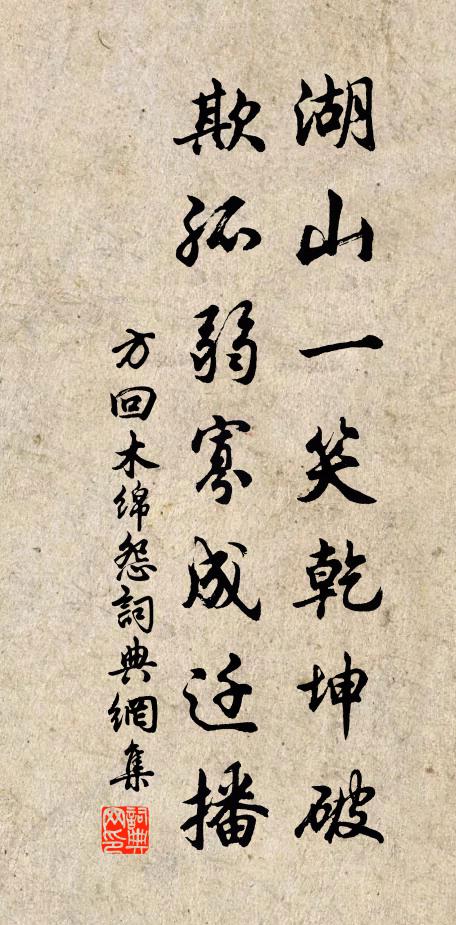 湖山一笑乾坤破
欺孤弱寡成迁播
方回木绵怨詞典網集
詞典网印